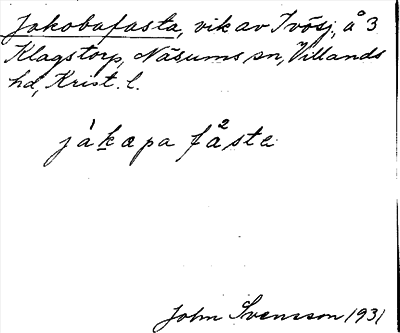 Jakobafasta, vik av Ivösj, å 3
Klagstorp, Näsums sn, Villands
hd, Krist. l.
jàkapa få²sta
John Svensson 1931